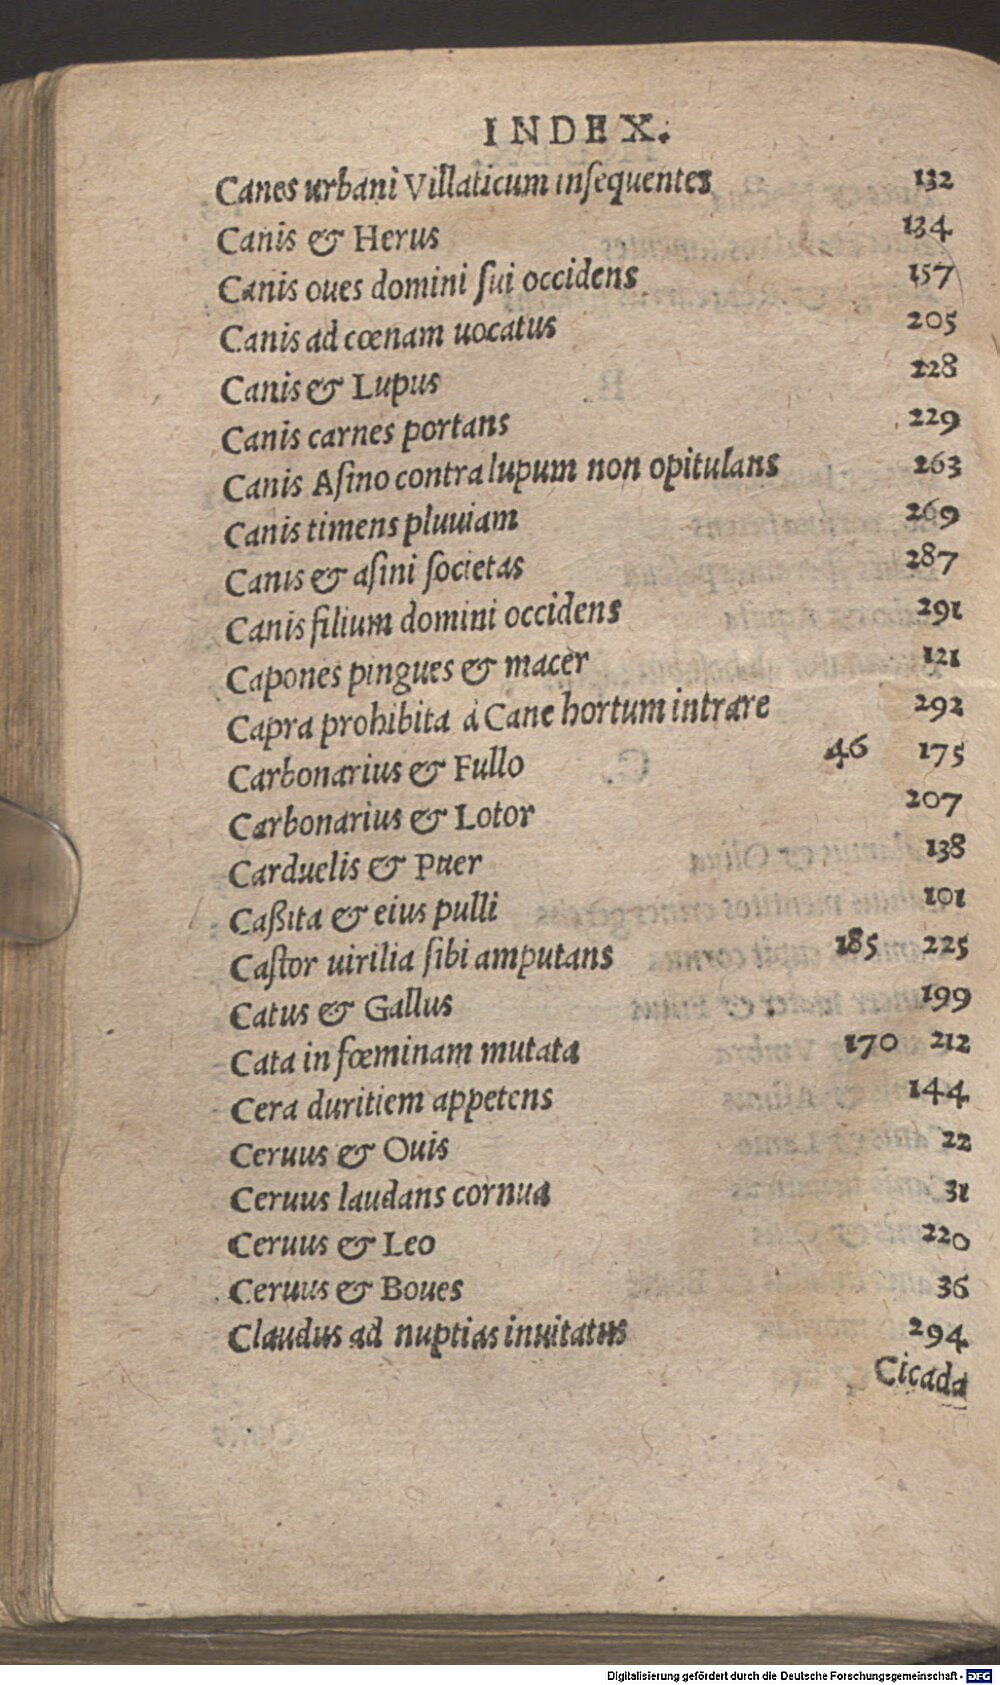 INDEX.
Canes urbani Villaticum insequentes 132
Canis & Herus 134
Canis oues domini sui occidens 157
Canis ad cœnam uocatus 205
Canis & Lupus 228
Canis carnes portans 229
Canis Asino contra lupum non opitulans 263
Canis timens pluuiam 269
Canis & asini societas 287
Canis filium domini occidens 291
Capones pingues & macer 121
Capra prohibita à Cane hortum intrare 292
Carbonarius & Fullo 46 175
Carbonarius & Lotor 207
Carduelis & Puer 138
Caßita & eius pulli 101
Castor uirilia sibi amputans 185 225
Catus & Gallus 199
Cata in fœminam mutata 170 212
Cera duritiem appetens 144
Ceruus & Ouis 22
Ceruus laudans cornua 31
Ceruus & Leo 220
Ceruus & Boues 36
Claudus ad nuptias inuitatus 294
Cicada
Digitalisierung gefördert durch die Deutsche Forschungsgemeinschaft - DFG